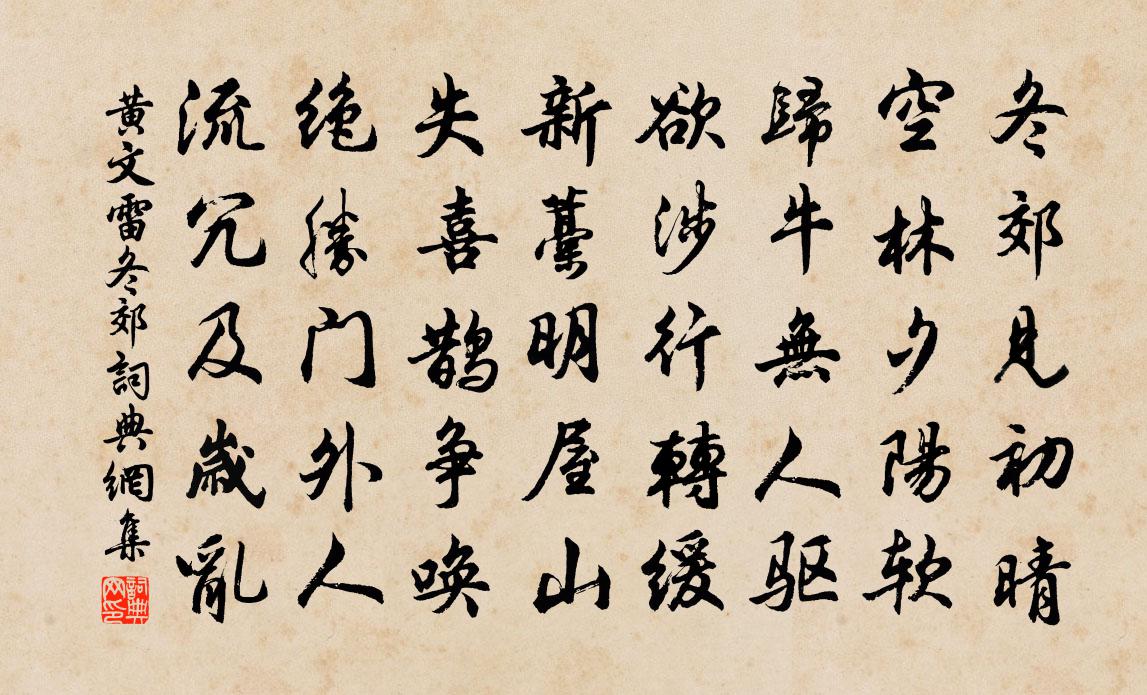 冬郊見初晴
空林夕陽軟
歸牛無人驱
欲涉行轉緩
新藁明屋山
失喜鵲争唤
绝勝门外人
流冗及歲亂
黄文雷冬郊詞典網集
詞典网印